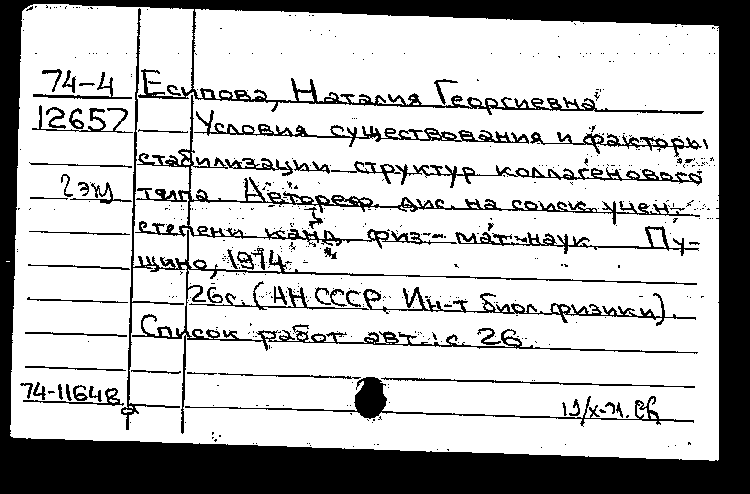 74-4 Есипова, Наталия Георгиевна.
12657 Условия существования и факторы
стабилизации структур коллагенового
2 экз типа. Автореф. дис. на соиск. учен.
степени канд. физ.-мат. наук. Пу-
щино, 1974.
26с. (АН СССР. Ин-т биол. физики).
Список работ авт.: с. 26.
74-11648